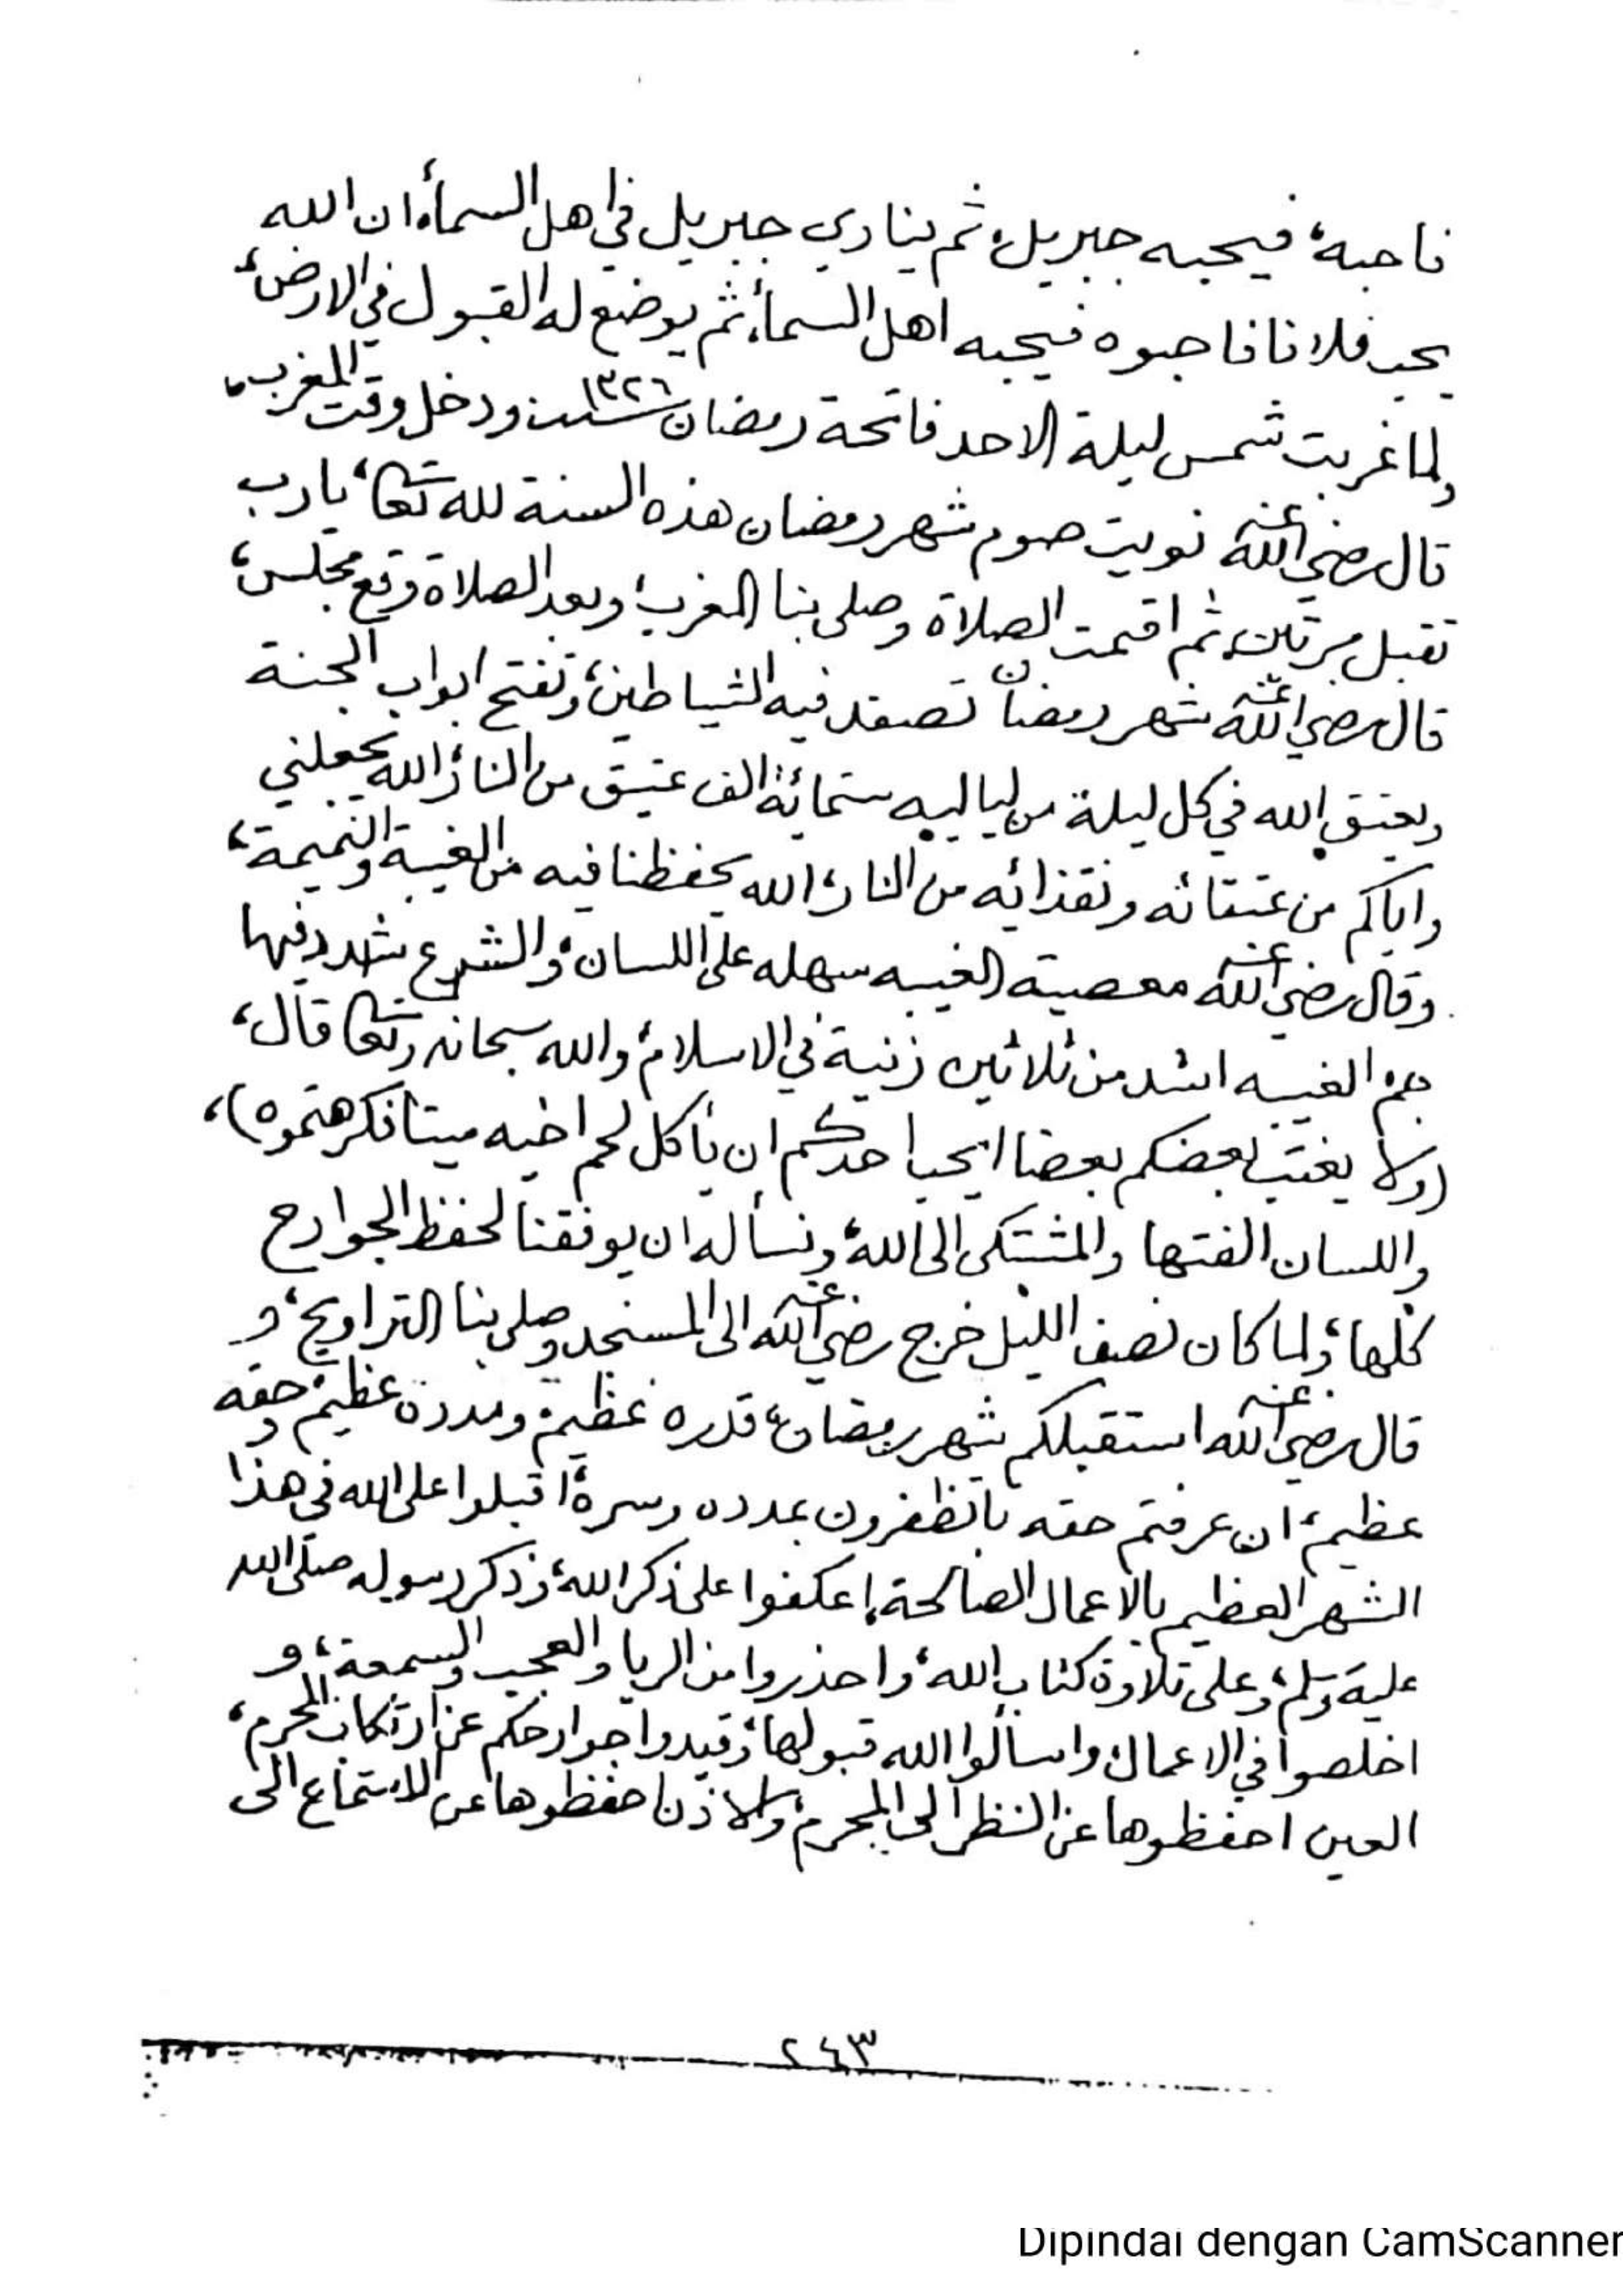 فاحبه، فيحبه جبريل، ثم ينادي جبريل في اهل السمأ، ان الله
يحب فلانا فاحبوه فيحبه اهل السمأ، ثم يوضع له القبول في الارض،
ولما غربت شمس ليلة الاحد فاتحة رمضان سنة ١٣٢٦ ودخل وقت المغرب،
قال رضي الله عنه نويت صوم شهر رمضان هذه السنة لله تعالى، يارب
تقبل مرتين، ثم اقيمت الصلاة وصلى بنا المغرب، وبعد الصلاة وقع مجلس،
قال رضي الله عنه شهر رمضان تصفد فيه الشياطين، وتفتح ابواب الجنة
ويعتق الله في كل ليلة من لياليه ستمائة الف عتيق من النار، الله يجعلني
واياكم من عتقائه ونقذائه من النار، الله يحفظنا فيه من الغيبة والنميمة،
وقال رضي الله عنه معصية الغيبه سهله على اللسان، والشرع شدد فيها
الغيبه اشد من ثلاثين زنية في الاسلام، والله سبحانه وتعالى قال،
(ولا يغتب بعضكم بعضا ايحب احدكم ان يأكل لحم اخيه ميتا فكرهتموه)،
واللسان الفتها والمشتكى الى الله، ونسأله ان يوفقنا لحفظ الجوارح
كلها، ولما كان نصف الليل خرج رضي الله عنه الى المسجد وصلى بنا التراويح، و
قال رضي الله عنه استقبلكم شهر رمضان، قدره عظيم، ومدده عظيم، وحقه
عظيم، ان عرفتم حقه باتظفرون بمدده وسره، اقبلوا على الله في هذا
الشهر العظيم بالاعمال الصالحة، اعكفوا على ذكر الله، وذكر رسوله صلى الله
عليه وسلم، وعلى تلاوة كتاب الله، واحذروا من الريا والعجب والسمعة، و
اخلصوا في الاعمال، واسألوا الله قبولها، وقيدوا جوارحكم عن ارتكاب المحرم،
العين احفظوها عن النظر الى المحرم، والاذن احفظوها عن الاستماع الى
٢٤٣
Dipindai dengan CamScanner